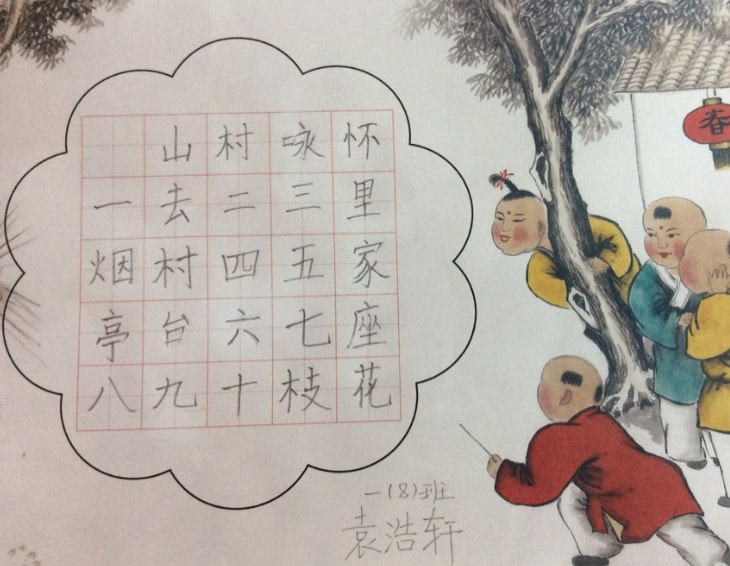 山村咏怀
一去二三里
烟村四五家
亭台六七座
八九十枝花
一(8)班
袁浩轩
春